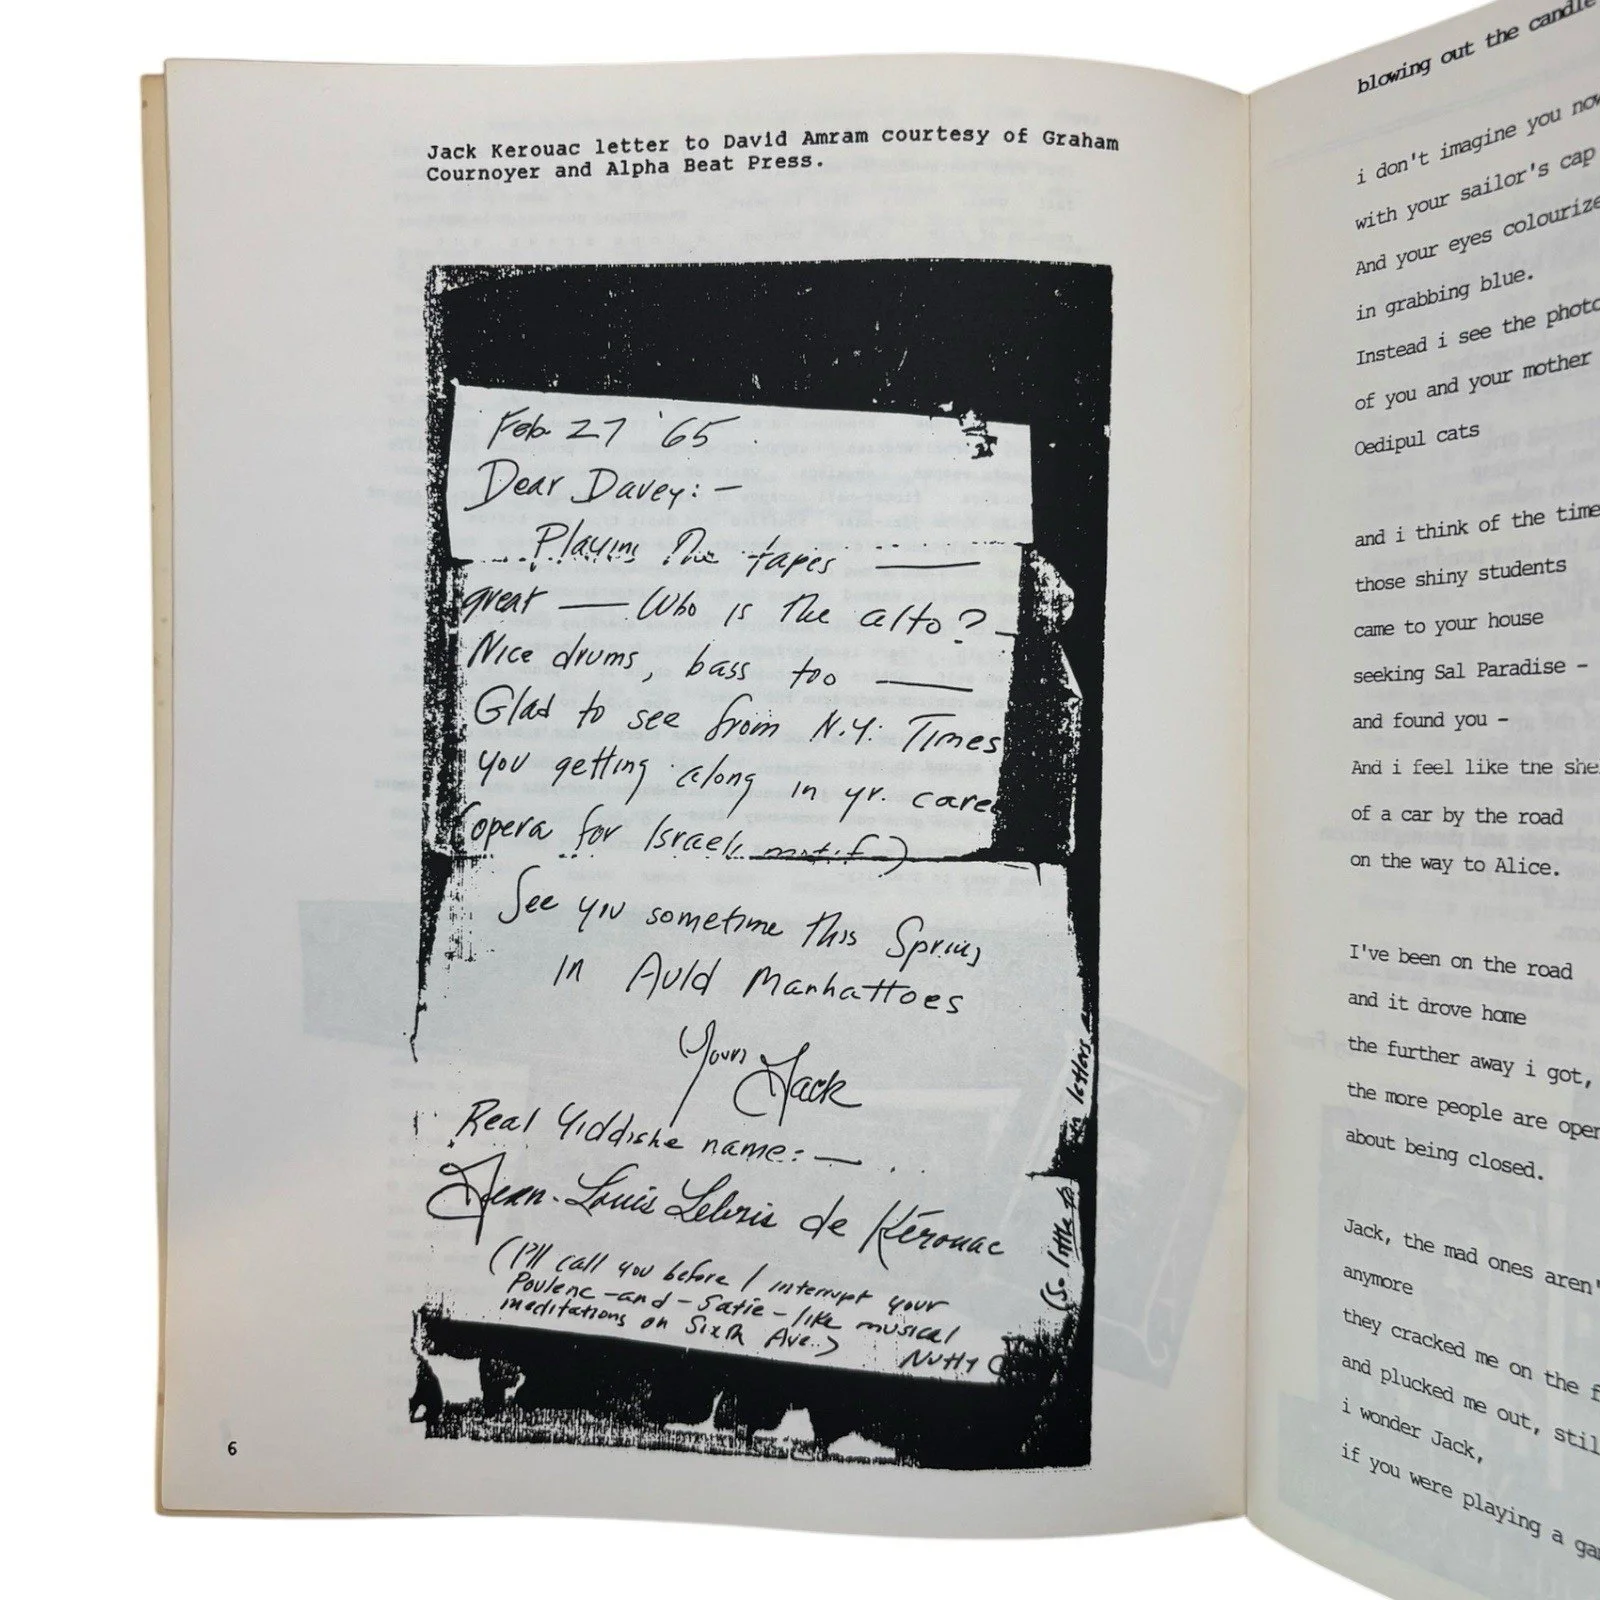 Jack Kerouac letter to David Amram courtesy of Graham
Cournoyer and Alpha Beat Press.
Feb. 27 '65
Dear Davey: —
Playing The tapes ——
great —— Who is the alto? —
Nice drums, bass too ——
Glad to see from N.Y. Times
you getting along in yr.
(opera for Israeli motif)
See you sometime this Spring
in Auld Manhattoes
Yours Jack
Real Yiddishe name: —
Jean-Louis Lebris de Kérouac
(I'll call you before I interrupt your
Poulenc-and-Satie-like musical
meditations on Sixth Ave.)
Nutty
(So little to
in letters
6
blowing out the candle
i don't imagine you now
with your sailor's cap
And your eyes colourize
in grabbing blue.
Instead i see the photo
of you and your mother
Oedipul cats
and i think of the time
those shiny students
came to your house
seeking Sal Paradise -
and found you -
And i feel like the
of a car by the road
on the way to Alice.
I've been on the road
and it drove home
the further away i got,
the more people are open
about being closed.
Jack, the mad ones aren'
anymore
they cracked me on the
and plucked me out,
i wonder Jack,
if you were playing a